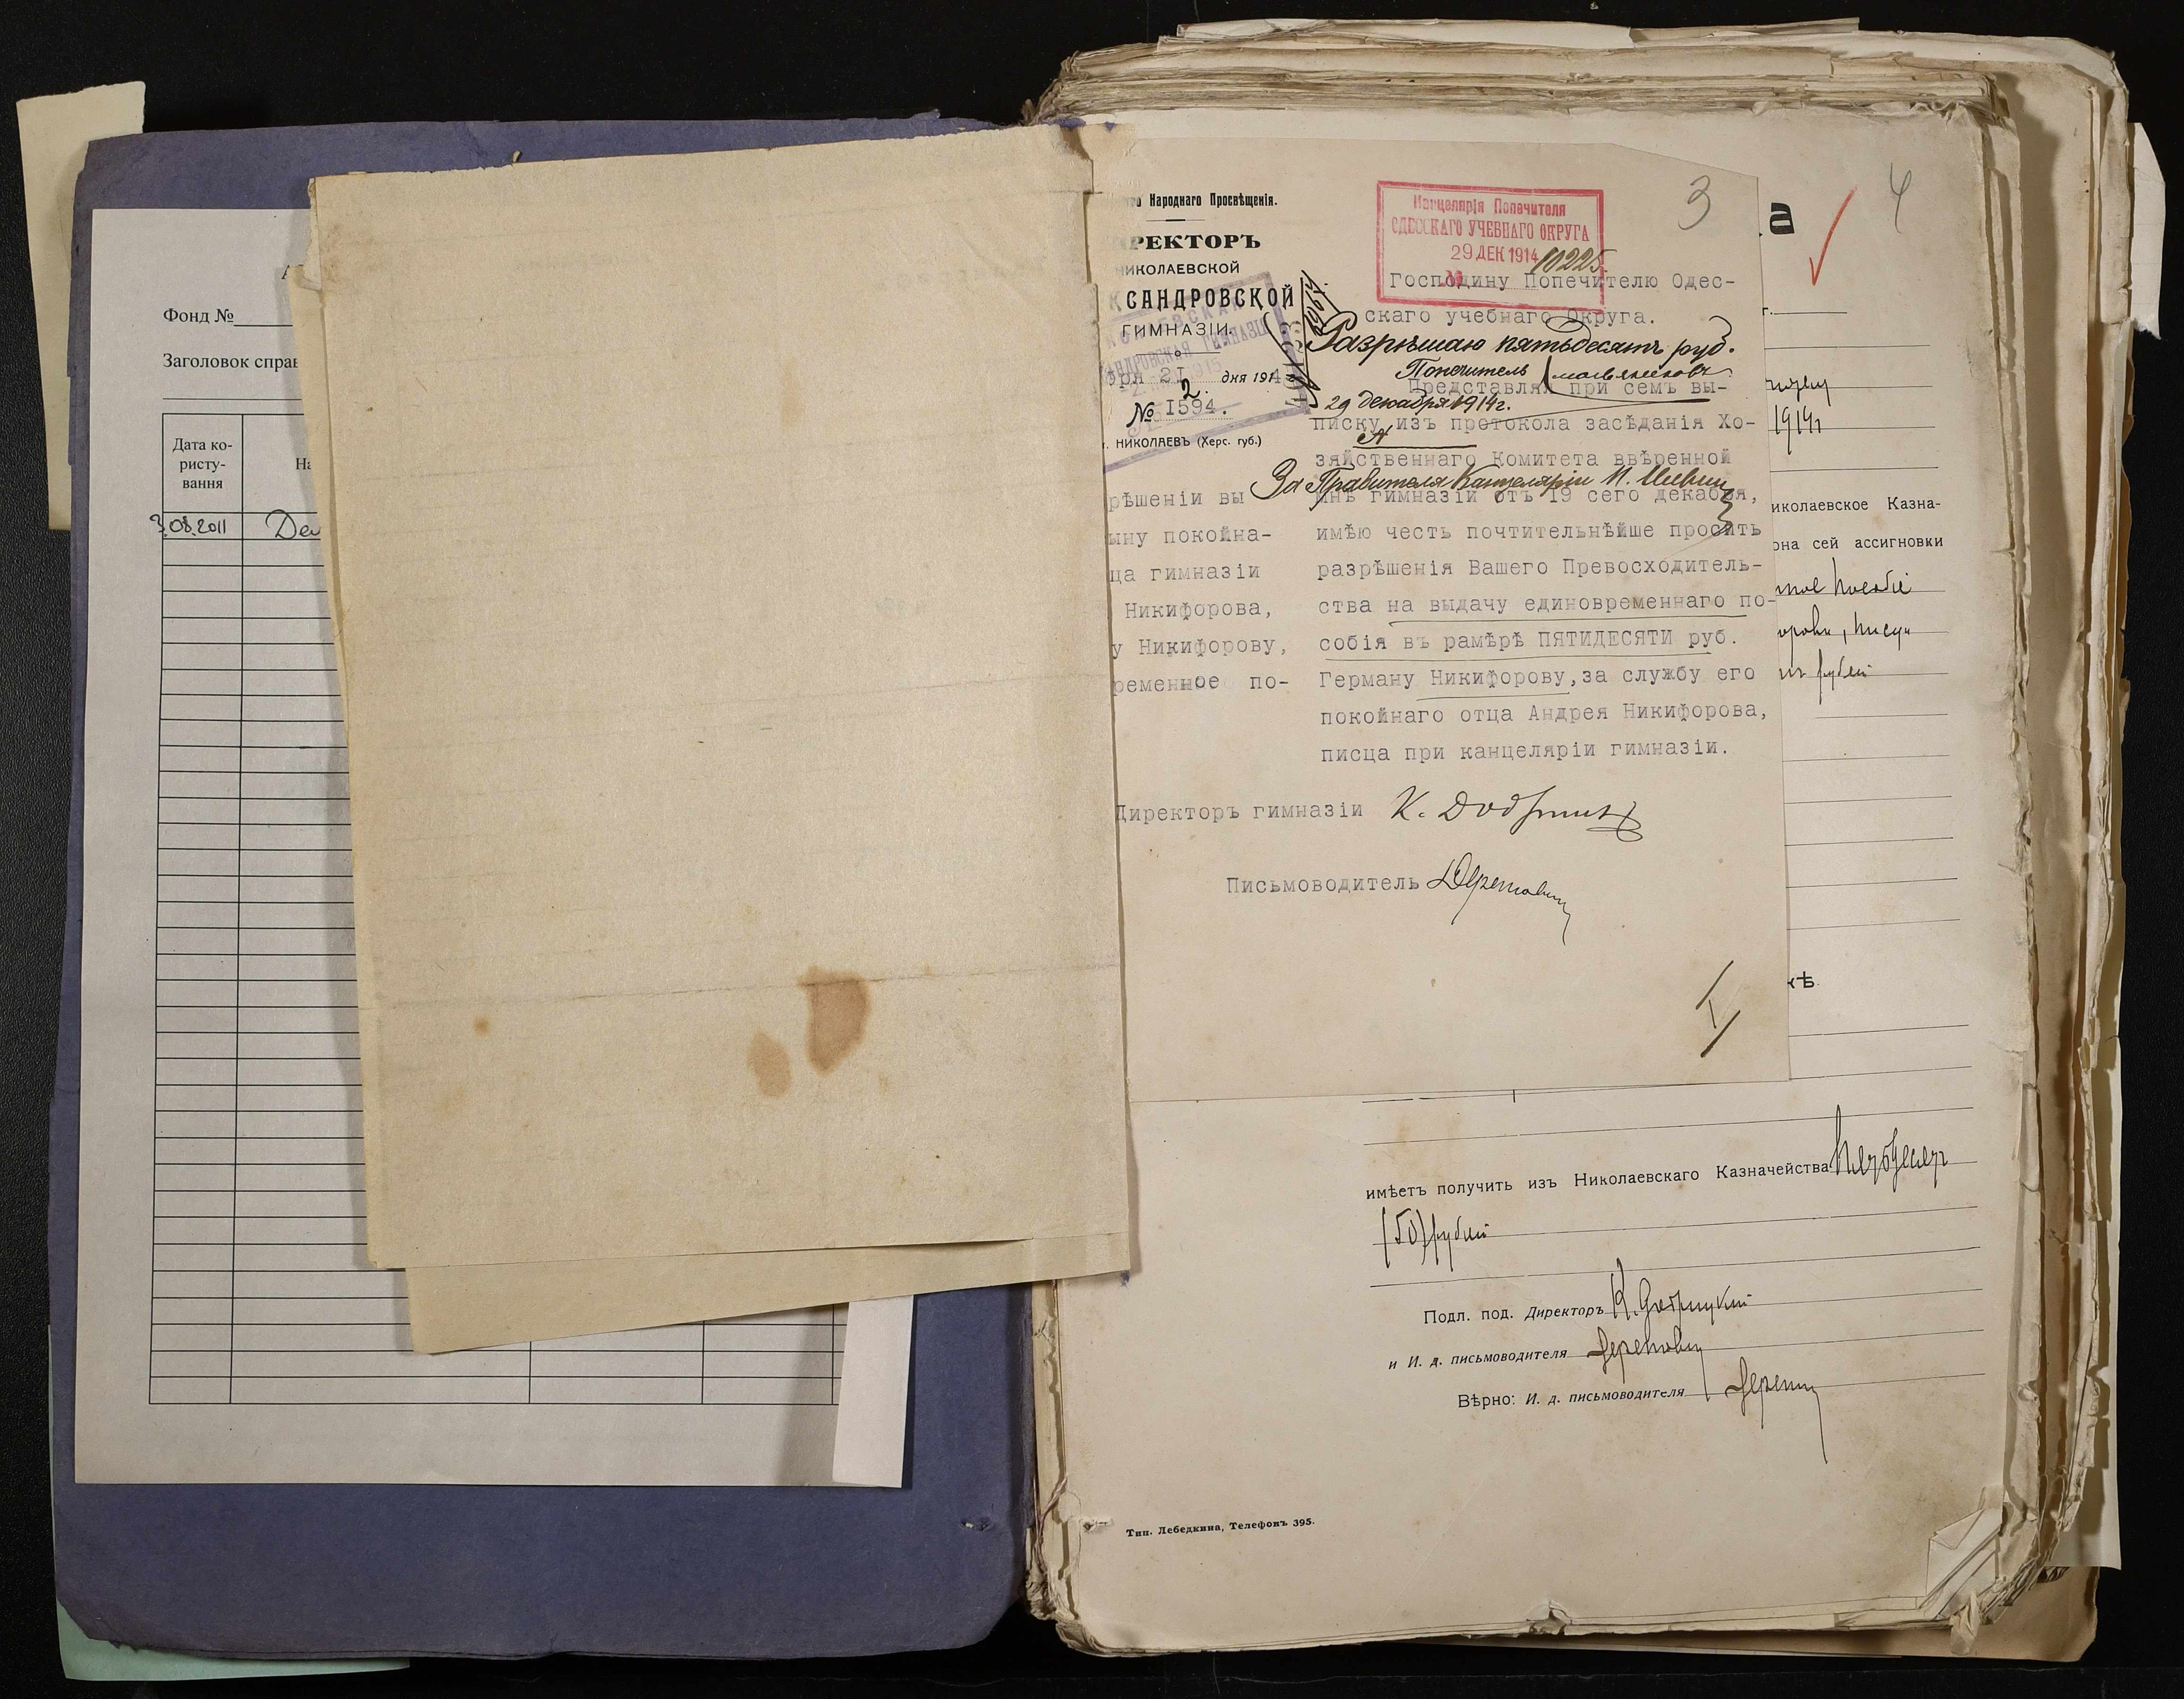 Фонд №
Заголовок справ
Дата ко-
ристу-
вання
На
08.2011
Народнаго Просвѣщенія.
РЕКТОРЪ
НИКОЛАЕВСКОЙ
КСАНДРОВСКОЙ
ГИМНАЗІИ.
бря 21 дня 1914
2.
№ I594.
г. НИКОЛАЕВЪ (Херс. губ.)
рѣшеніи вы
ыну покойна-
ца гимназіи
Никифорова,
у Никифорову,
ременное по-
Канцелярія Попечителя
ОДЕССКАГО УЧЕБНАГО ОКРУГА
29 ДЕК 1914
10225
3
Господину Попечителю Одес-
скаго учебнаго Округа.
Разрѣшаю пятьдесятъ руб.
Попечитель
29 декабря 1914 г.
Представляя при семъ вы-
писку изъ протокола засѣданія Хо-
зяйственнаго Комитета ввѣренной
За Правителя Канцеляріи
мнѣ гимназіи отъ 19 сего декабря,
имѣю честь почтительнѣйше просить
разрѣшенія Вашего Превосходитель-
ства на выдачу единовременнаго по-
собія въ рамѣрѣ ПЯТИДЕСЯТИ руб.
Герману Никифорову,за службу его
покойнаго отца Андрея Никифорова,
писца при канцеляріи гимназіи.
Директоръ гимназіи
Письмоводитель
а
4
г.
1914 г
иколаевское Казна-
она сей ассигновки
пособіе
рублей
кѣ
имѣетъ получить изъ Николаевскаго Казначейства Пятьдесят
(50) рублей
Подл. под. Директоръ К.
и И. д. письмоводителя
Вѣрно: И. д. письмоводителя
Тип. Лебедкина, Телефонъ 395.